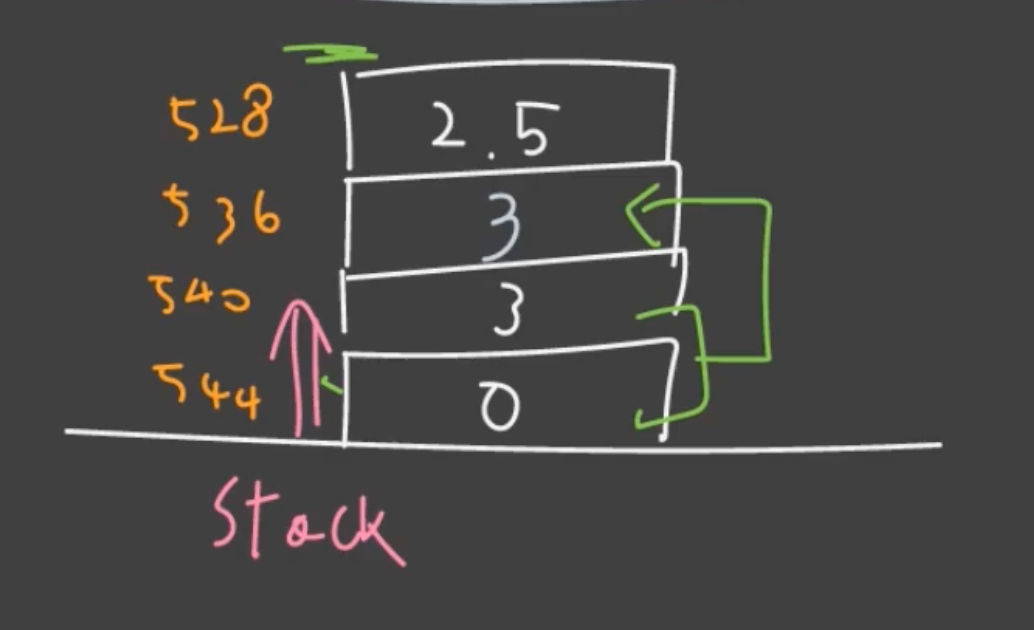 528 2.5
536 3
540 3
544 0
Stack